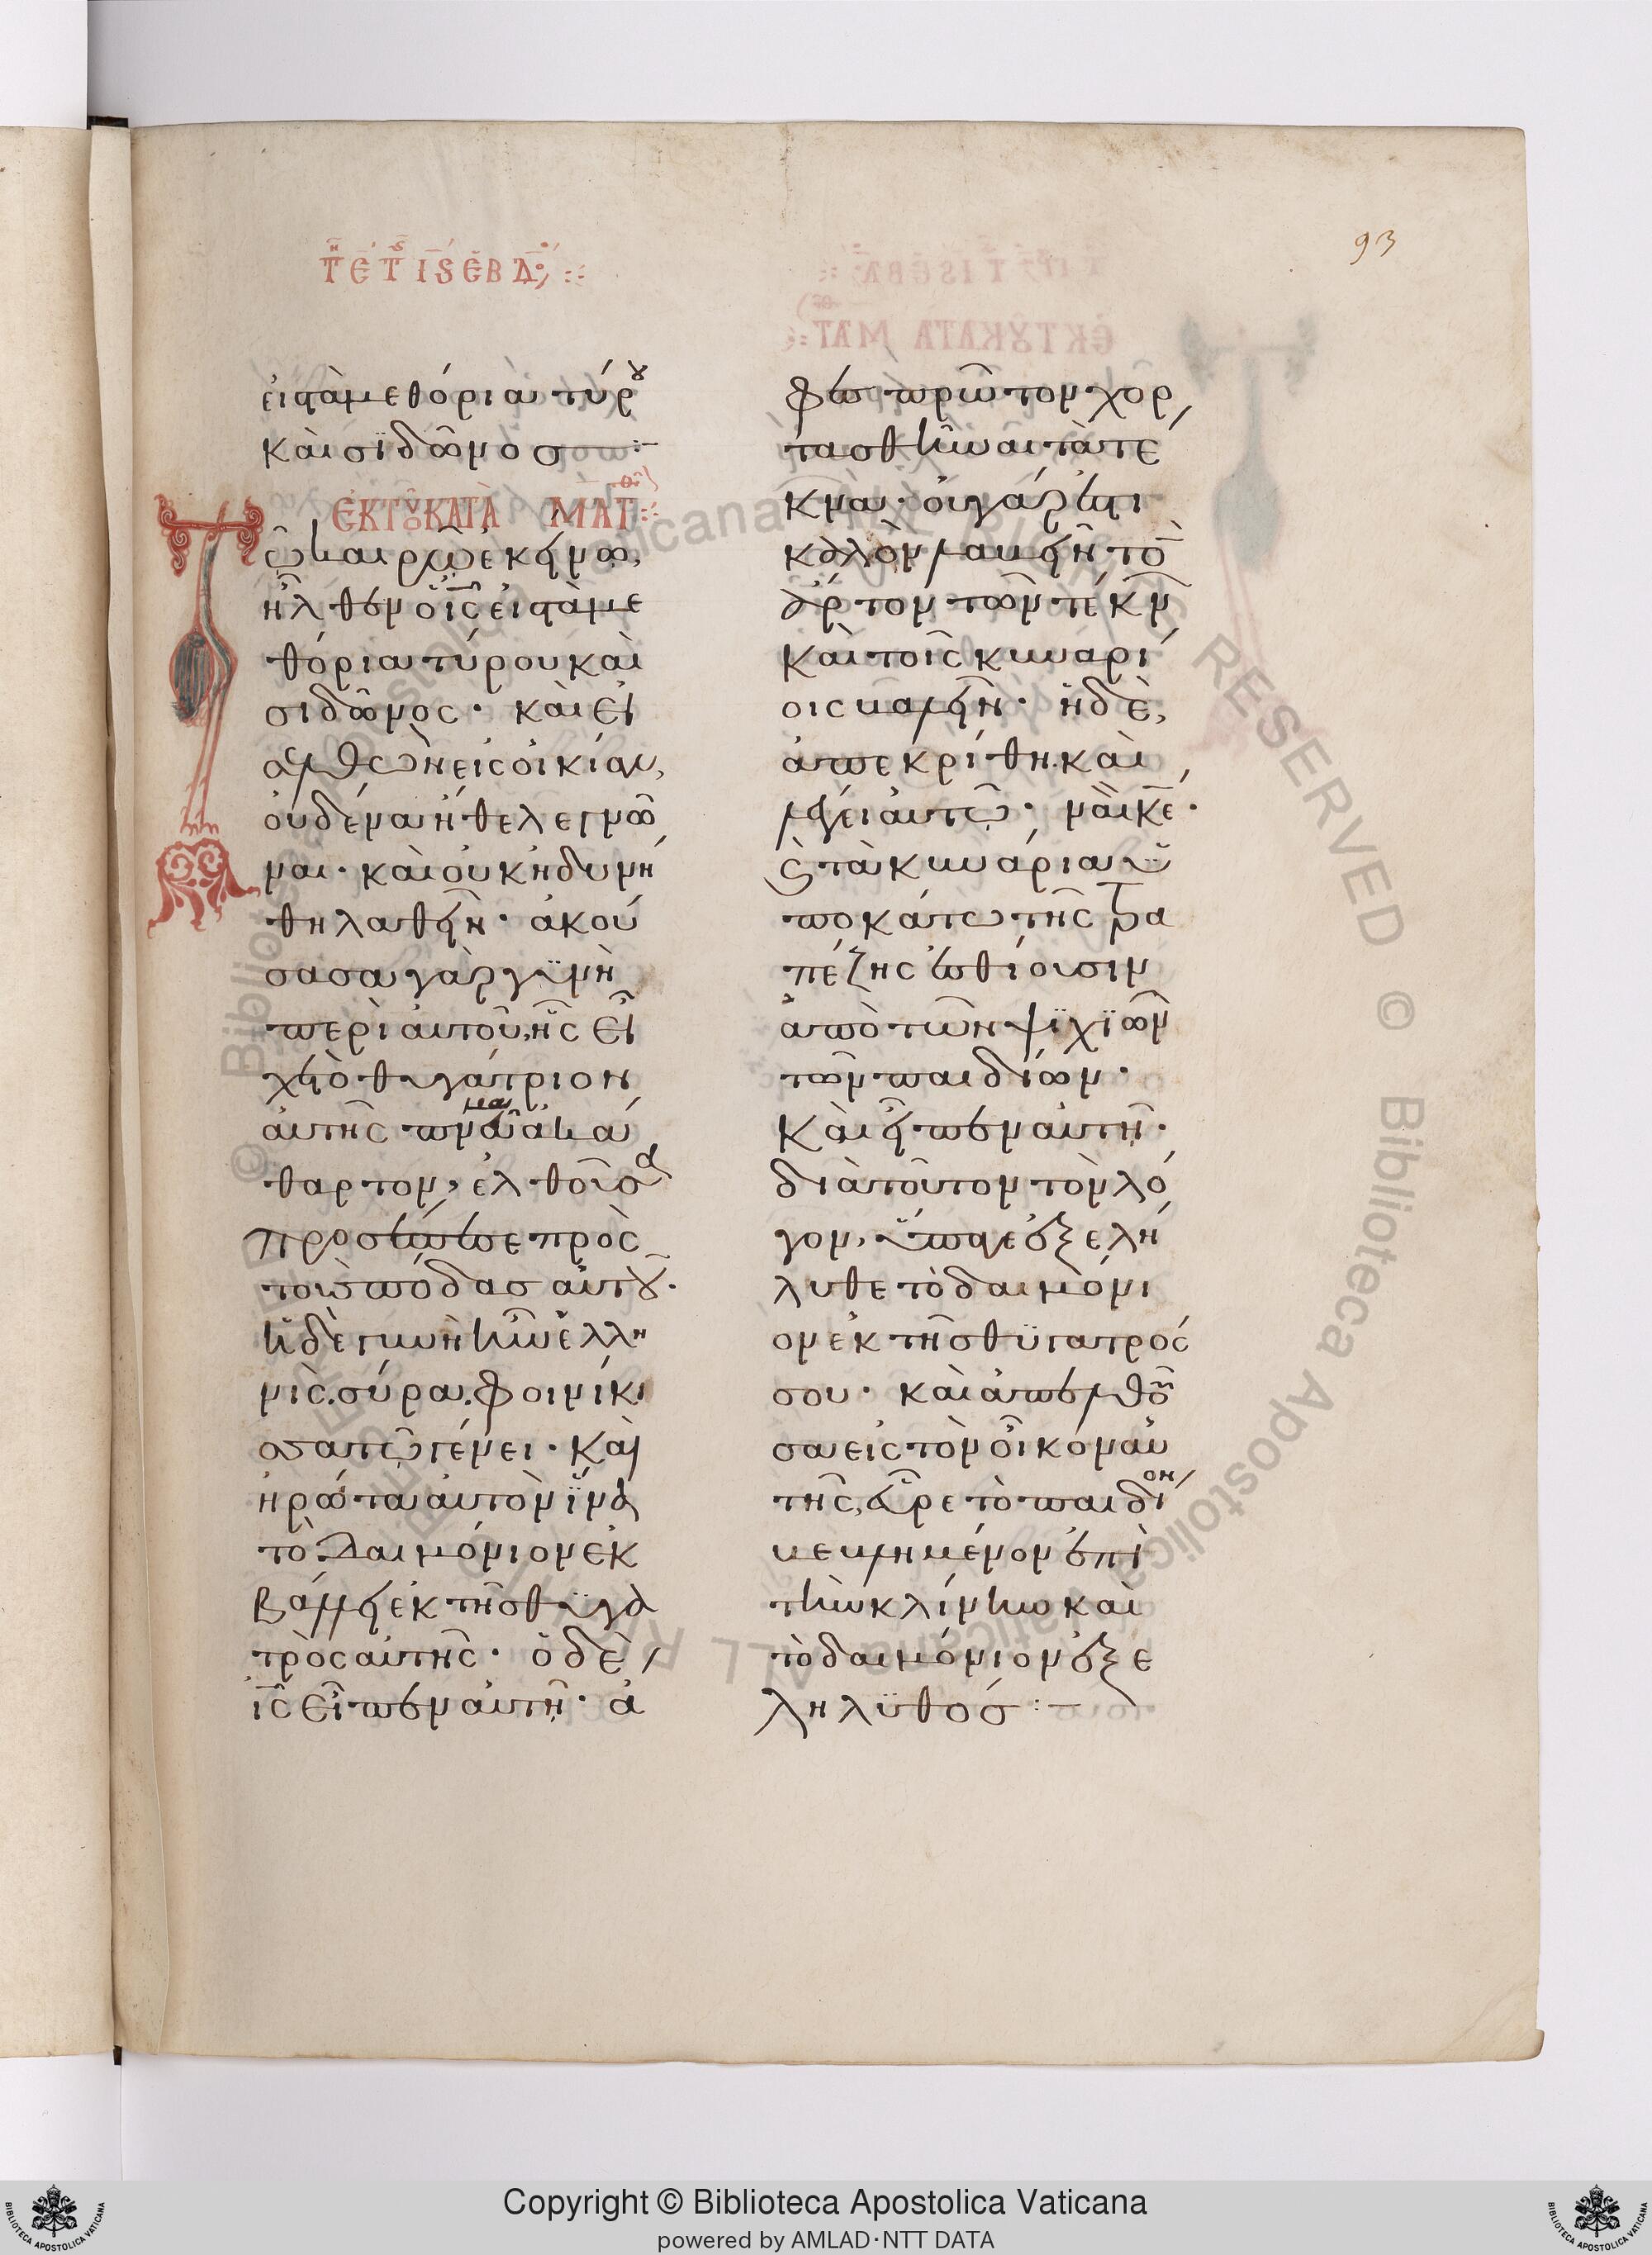 93
Τῆ ε̄ τῆς ῑϛ ἑβδ
εἰς τὰ μεθόρια τύρου
καὶ σϊδῶνοσ:
ἐκ τοῦ κατὰ Ματθ
Τῶ καιρῶ ἐκείνω,
ἦλθεν ὁ ῑς̄ εἰς τὰ με
θόρια τύρου καὶ
σιδῶνος· καὶ εἰ
σελθὼν εἰς οἰκίαν,
οὐδένα ἤθελε γνῶ
ναι· καὶ οὐκ ἠδυνή
θη λαθεῖν· ἀκού
σασα γὰρ γϋνὴ
περὶ αὐτοῦ, ἧς εἶ
χε τὸ θυγάτριον
αὐτῆς πνεῦμα ἀκά
θαρτον, ἐλθοῦσα
προσέπεσε πρὸς
τοὺσ πόδασ αὐτοῦ·
ἡ δὲ γυνὴ ἦν ἑλλη
νὶς. σύρα. φοινίκι
σσα τῶ γένει· καὶ
ἠρώτα αὐτὸν ἵ̈να
τὸ δαιμόνιον ἐκ
βάλλει ἐκ τῆσ θϋγα
τρὸς αὐτῆς· ὁ δὲ
ῑς̄ εἶπεν αὐτῆ· ἄ
φες πρῶτον χορ
τασθῆναι τὰ τέ
κνα· οὐ γάρ ἐστι
καλὸν λαβεῖν τὸν
ἄρτον τῶν τέκνων
καὶ τοῖς κυναρί
οις βαλεῖν· ἡ δὲ,
ἀπεκρίθη. καὶ
λέγει αὐτῶ· ναὶ κ̄ε̄·
καὶ τὰ κυνάρια ὑ
ποκάτω τῆς τρα
πέζης ἐσθίουσιν
ἀπὸ τῶν ψϊχϊῶν
τῶν παιδίων·
καὶ εἶπεν αὐτῆ·
διὰ τοῦτον τὸν λό
γον, ὕπαγε ἐξελή
λυθε τὸ δαιμόνι
ον ἐκ τῆσ θϋγατρός
σου· καὶ ἀπελθοῦ
σα εἰς τὸν οἶκον αὐ
τῆς, εὗρε τὸ παιδίον
βεβλημένον ἐπὶ
τὴν κλίνην καὶ
τὸ δαιμόνιον ἐξε
ληλϋθόσ:
Copyright © Biblioteca Apostolica Vaticana
powered by AMLAD·NTT DATA
© Biblioteca Apostolica Vaticana ALL RIGHTS RESERVED
BIBLIOTECA APOSTOLICA VATICANA
BIBLIOTECA APOSTOLICA VATICANA